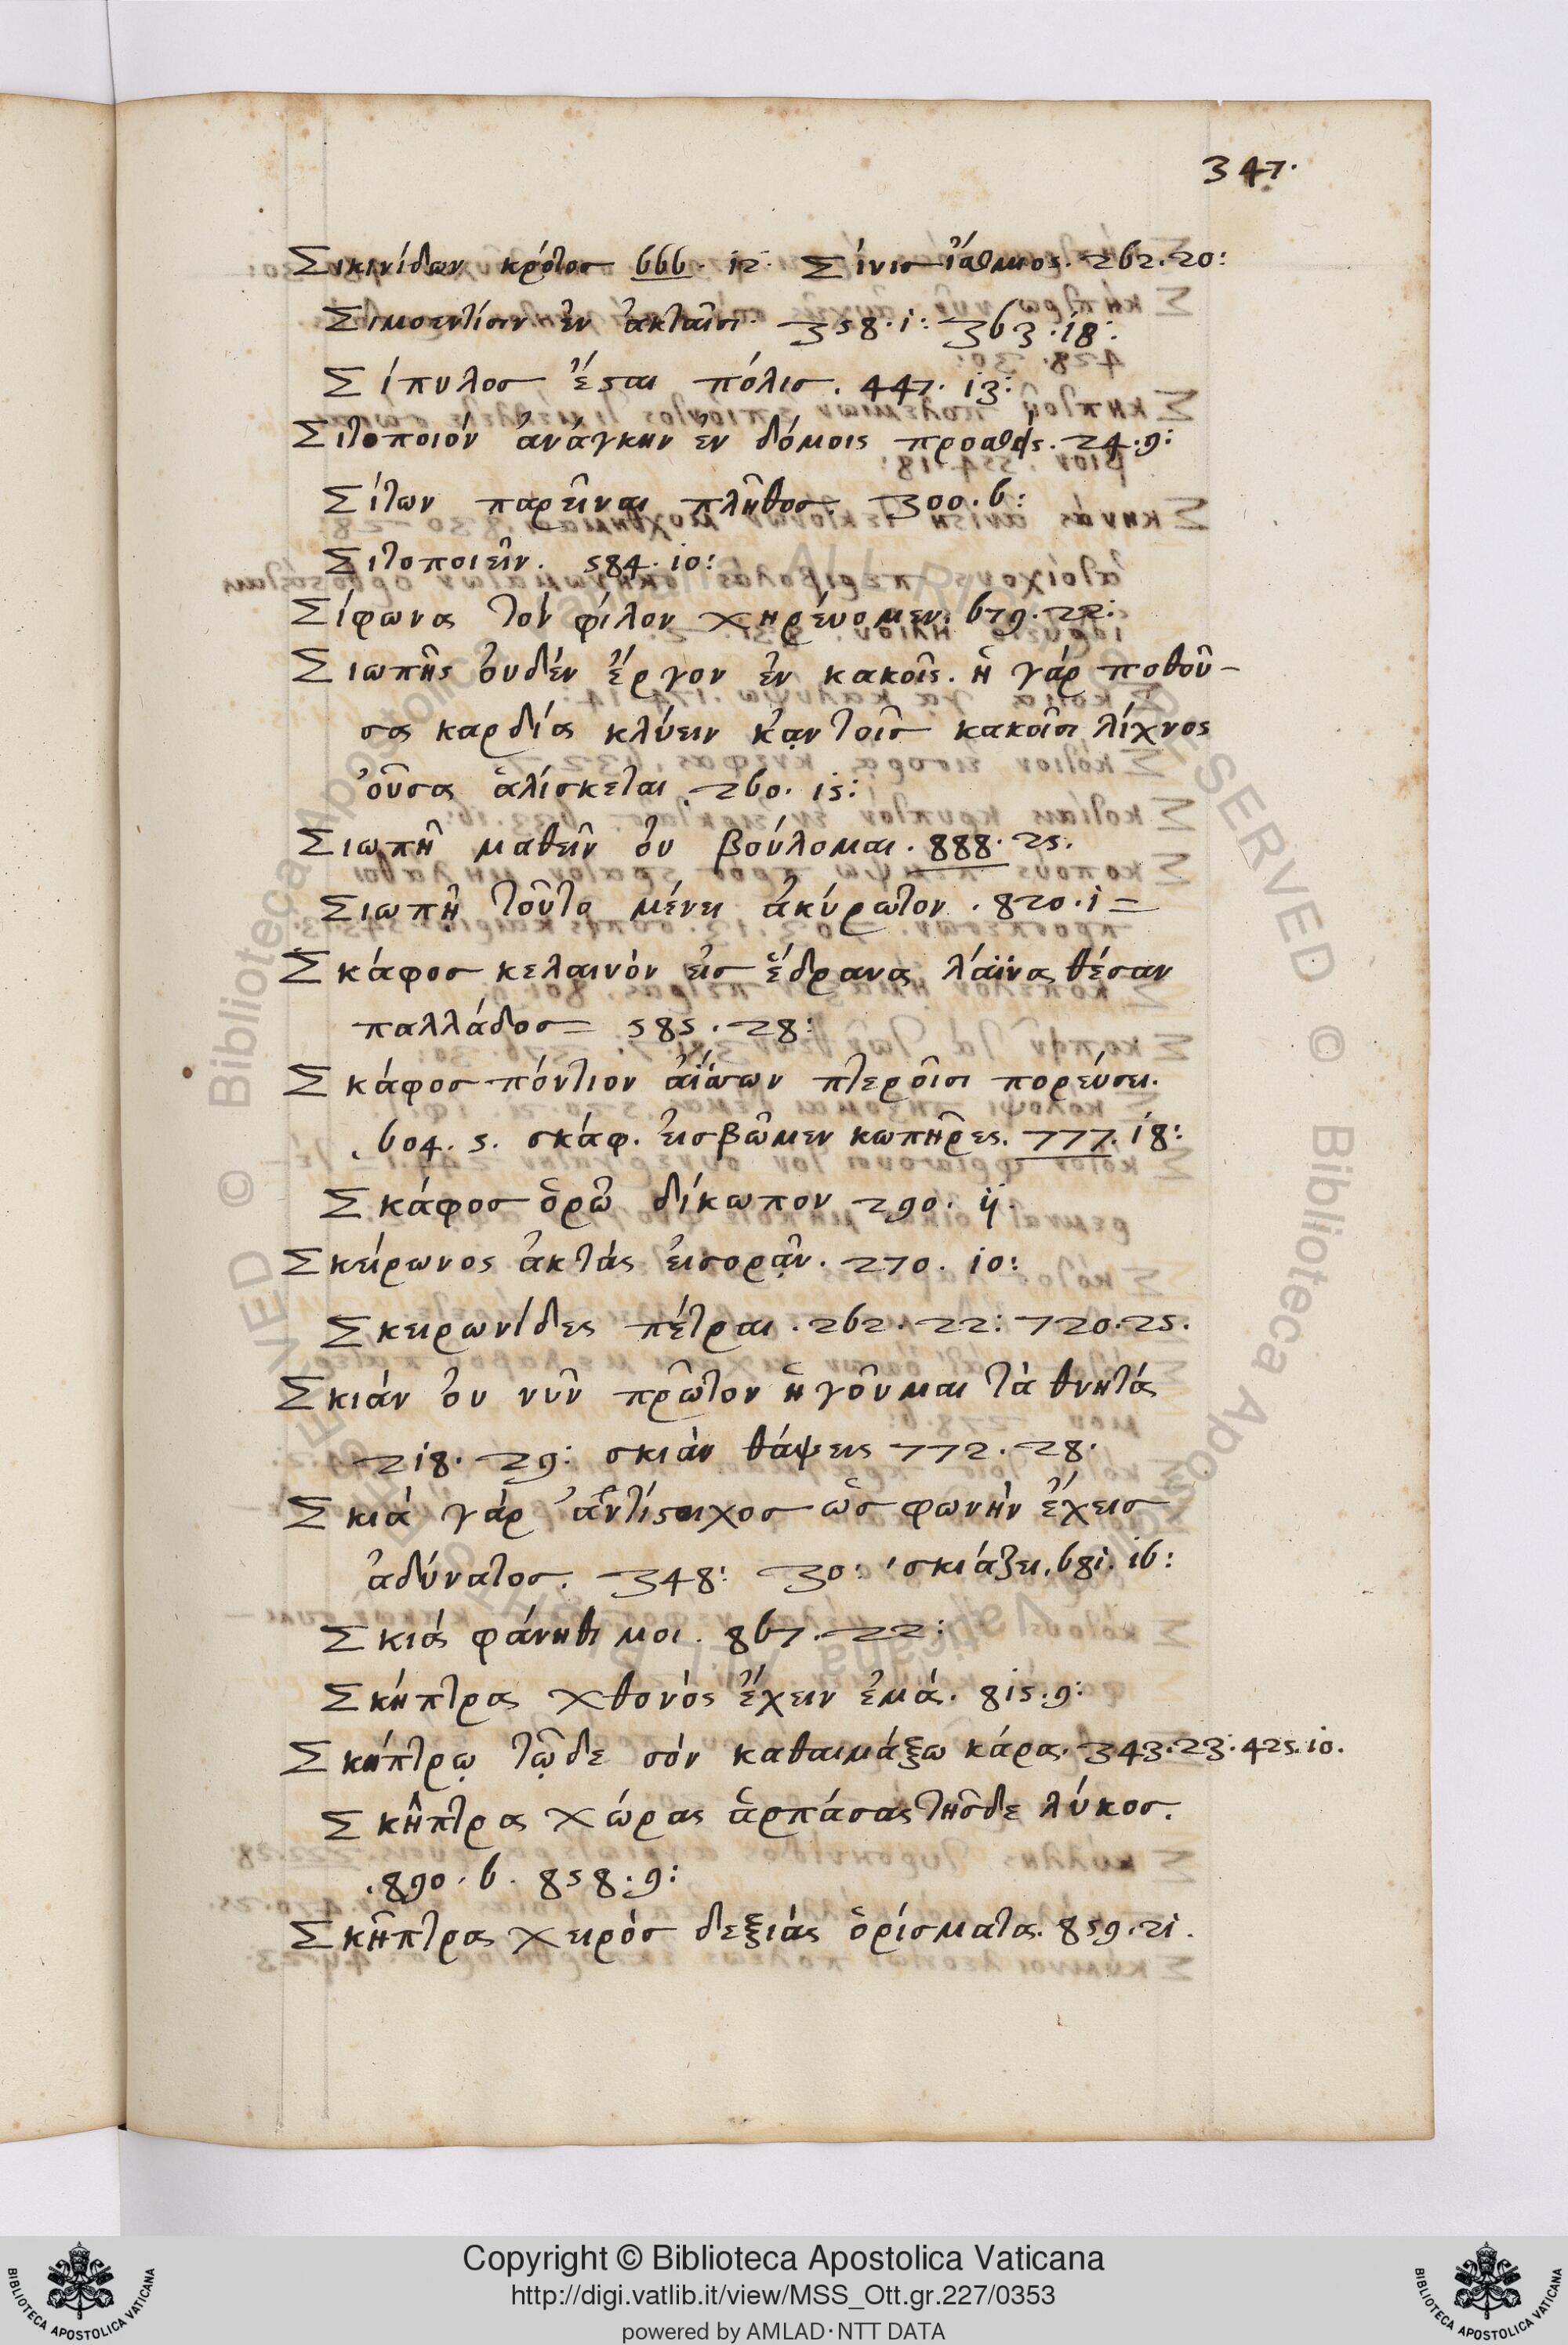 347.
Σικινίδων κρότοσ 666. 12. Σίνισ ἴσθμιος. 262. 20:
Σιμοεντίσιν ἐν ἀκταῖσι. 358. 1: 363. 18:
Σίπυλοσ ἔσαι πόλισ. 447. 13:
Σιτοποιόν ἀνάγκην ἐν δόμοις 24. 9:
Σίτων παρεῖναι πλῆθοσ. 300. 6:
Σιτοποιεῖν. 584. 10:
Σίφωνα τὸν φίλον χηρεύομεν. 679. 22:
Σιωπῆς ὀυδέν ἔργον ἐν κακοῖς. ἡ γάρ ποθοῦ-
σα καρδία κλύειν κᾀν τοῖσ κακοῖσι λίχνος
ὀῦσα ἁλίσκεται. 260. 15:
Σιωπῆ μαθεῖν ὀυ βούλομαι. 888. 25.
Σιωπῇ τοῦτο μένει ἀκύρωτον. 820. 1=
Σκάφοσ κελαινὸν ἐισ ἕδρανα λάϊνα θέσαν
παλλάδοσ= 585. 28:
Σκάφοσ πόντιον ἀΐσσων πτεροῖσι πορεύσει.
604. 5. σκάφ. ἐισβῶμεν κωπῆρες. 777. 18:
Σκάφοσ ὁρῶ δίκωπον 290. 11.
Σκείρωνος ἀκτάς ἐισορᾷν. 270. 10:
Σκειρωνίδες πέτραι. 262. 22: 720. 25.
Σκιάν ὀυ νῦν πρῶτον ἡγοῦμαι τὰ θνητά
218. 29: σκιὰν θάψεις 772. 28.
Σκιὰ γάρ ἀντίστιχοσ ὡσ φωνὴν ἔχεισ
ἀδύνατοσ. 348: 30: σκιάζει. 681. 16:
Σκιά φάνηθι μοι. 867. 22:
Σκήπτρα χθονὸς ἔχειν ἐμά. 815. 9:
Σκήπτρῳ τῷδε σόν καθαιμάξω κάρα. 343. 23: 425. 10.
Σκῆπτρα χώρας ἁρπάσας τῆσδε λύκοσ.
890. 6. 858. 9:
Σκῆπτρα χειρόσ δεξιάς ὁρίσματα. 859. 21.
Copyright © Biblioteca Apostolica Vaticana
http://digi.vatlib.it/view/MSS_Ott.gr.227/0353
powered by AMLAD·NTT DATA
BIBLIOTECA APOSTOLICA VATICANA
BIBLIOTECA APOSTOLICA VATICANA